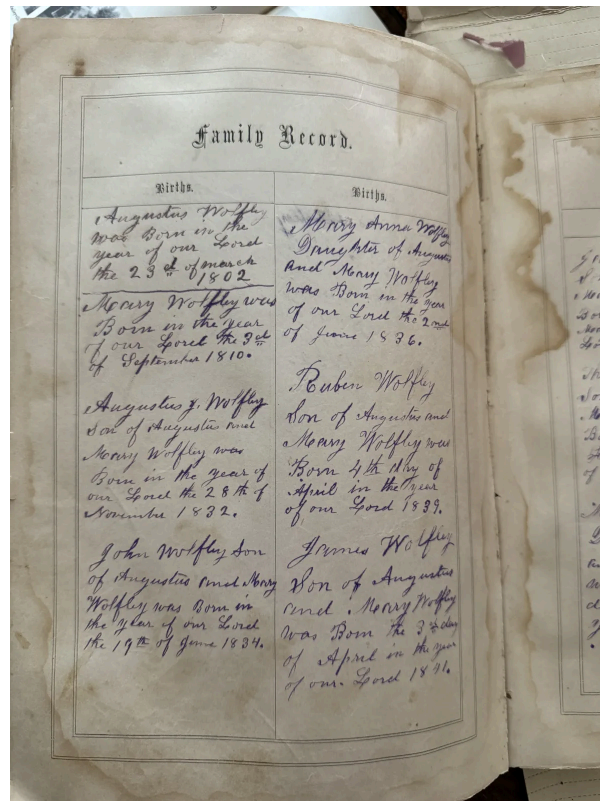 Family Record.
Births.
Augustus Wolfley
was Born in the
year of our Lord
the 23rd of march
1802
Mary Wolfley was
Born in the year
of our Lord the 3d
of September 1810.
Augustus y. Wolfley
Son of Augustus and
Mary Wolfley was
Born in the year of
our Lord the 28th of
November 1832.
John Wolfley Son
of Augustus and Mary
Wolfley was Born in
the year of our Lord
the 19th of June 1834.
Births.
Mary Anna Wolfley
Daughter of Augustus
and Mary Wolfley
was Born in the year
of our Lord the 2nd
of June 1836.
Ruben Wolfley
Son of Augustus and
Mary Wolfley was
Born 4th day of
April in the year
of our Lord 1839.
James Wolfley
Son of Augustus
and Mary Wolfley
was Born the 3rd day
of April in the year
of our Lord 1841.